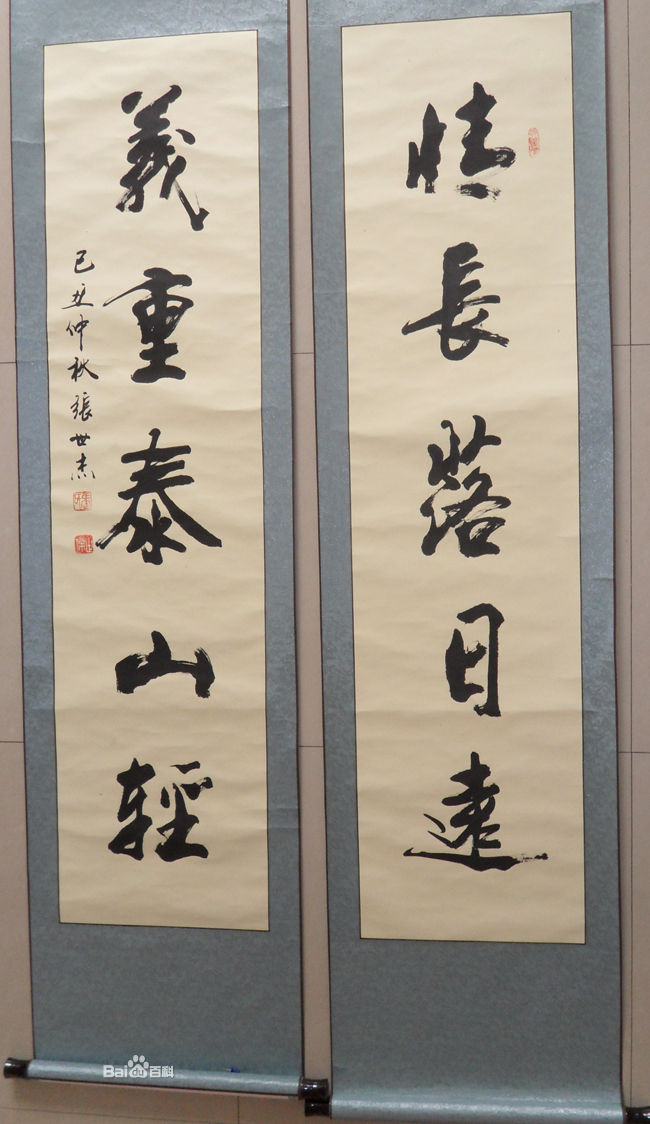 情長落日遠
義重泰山輕
己丑仲秋張世杰
Baidu百科